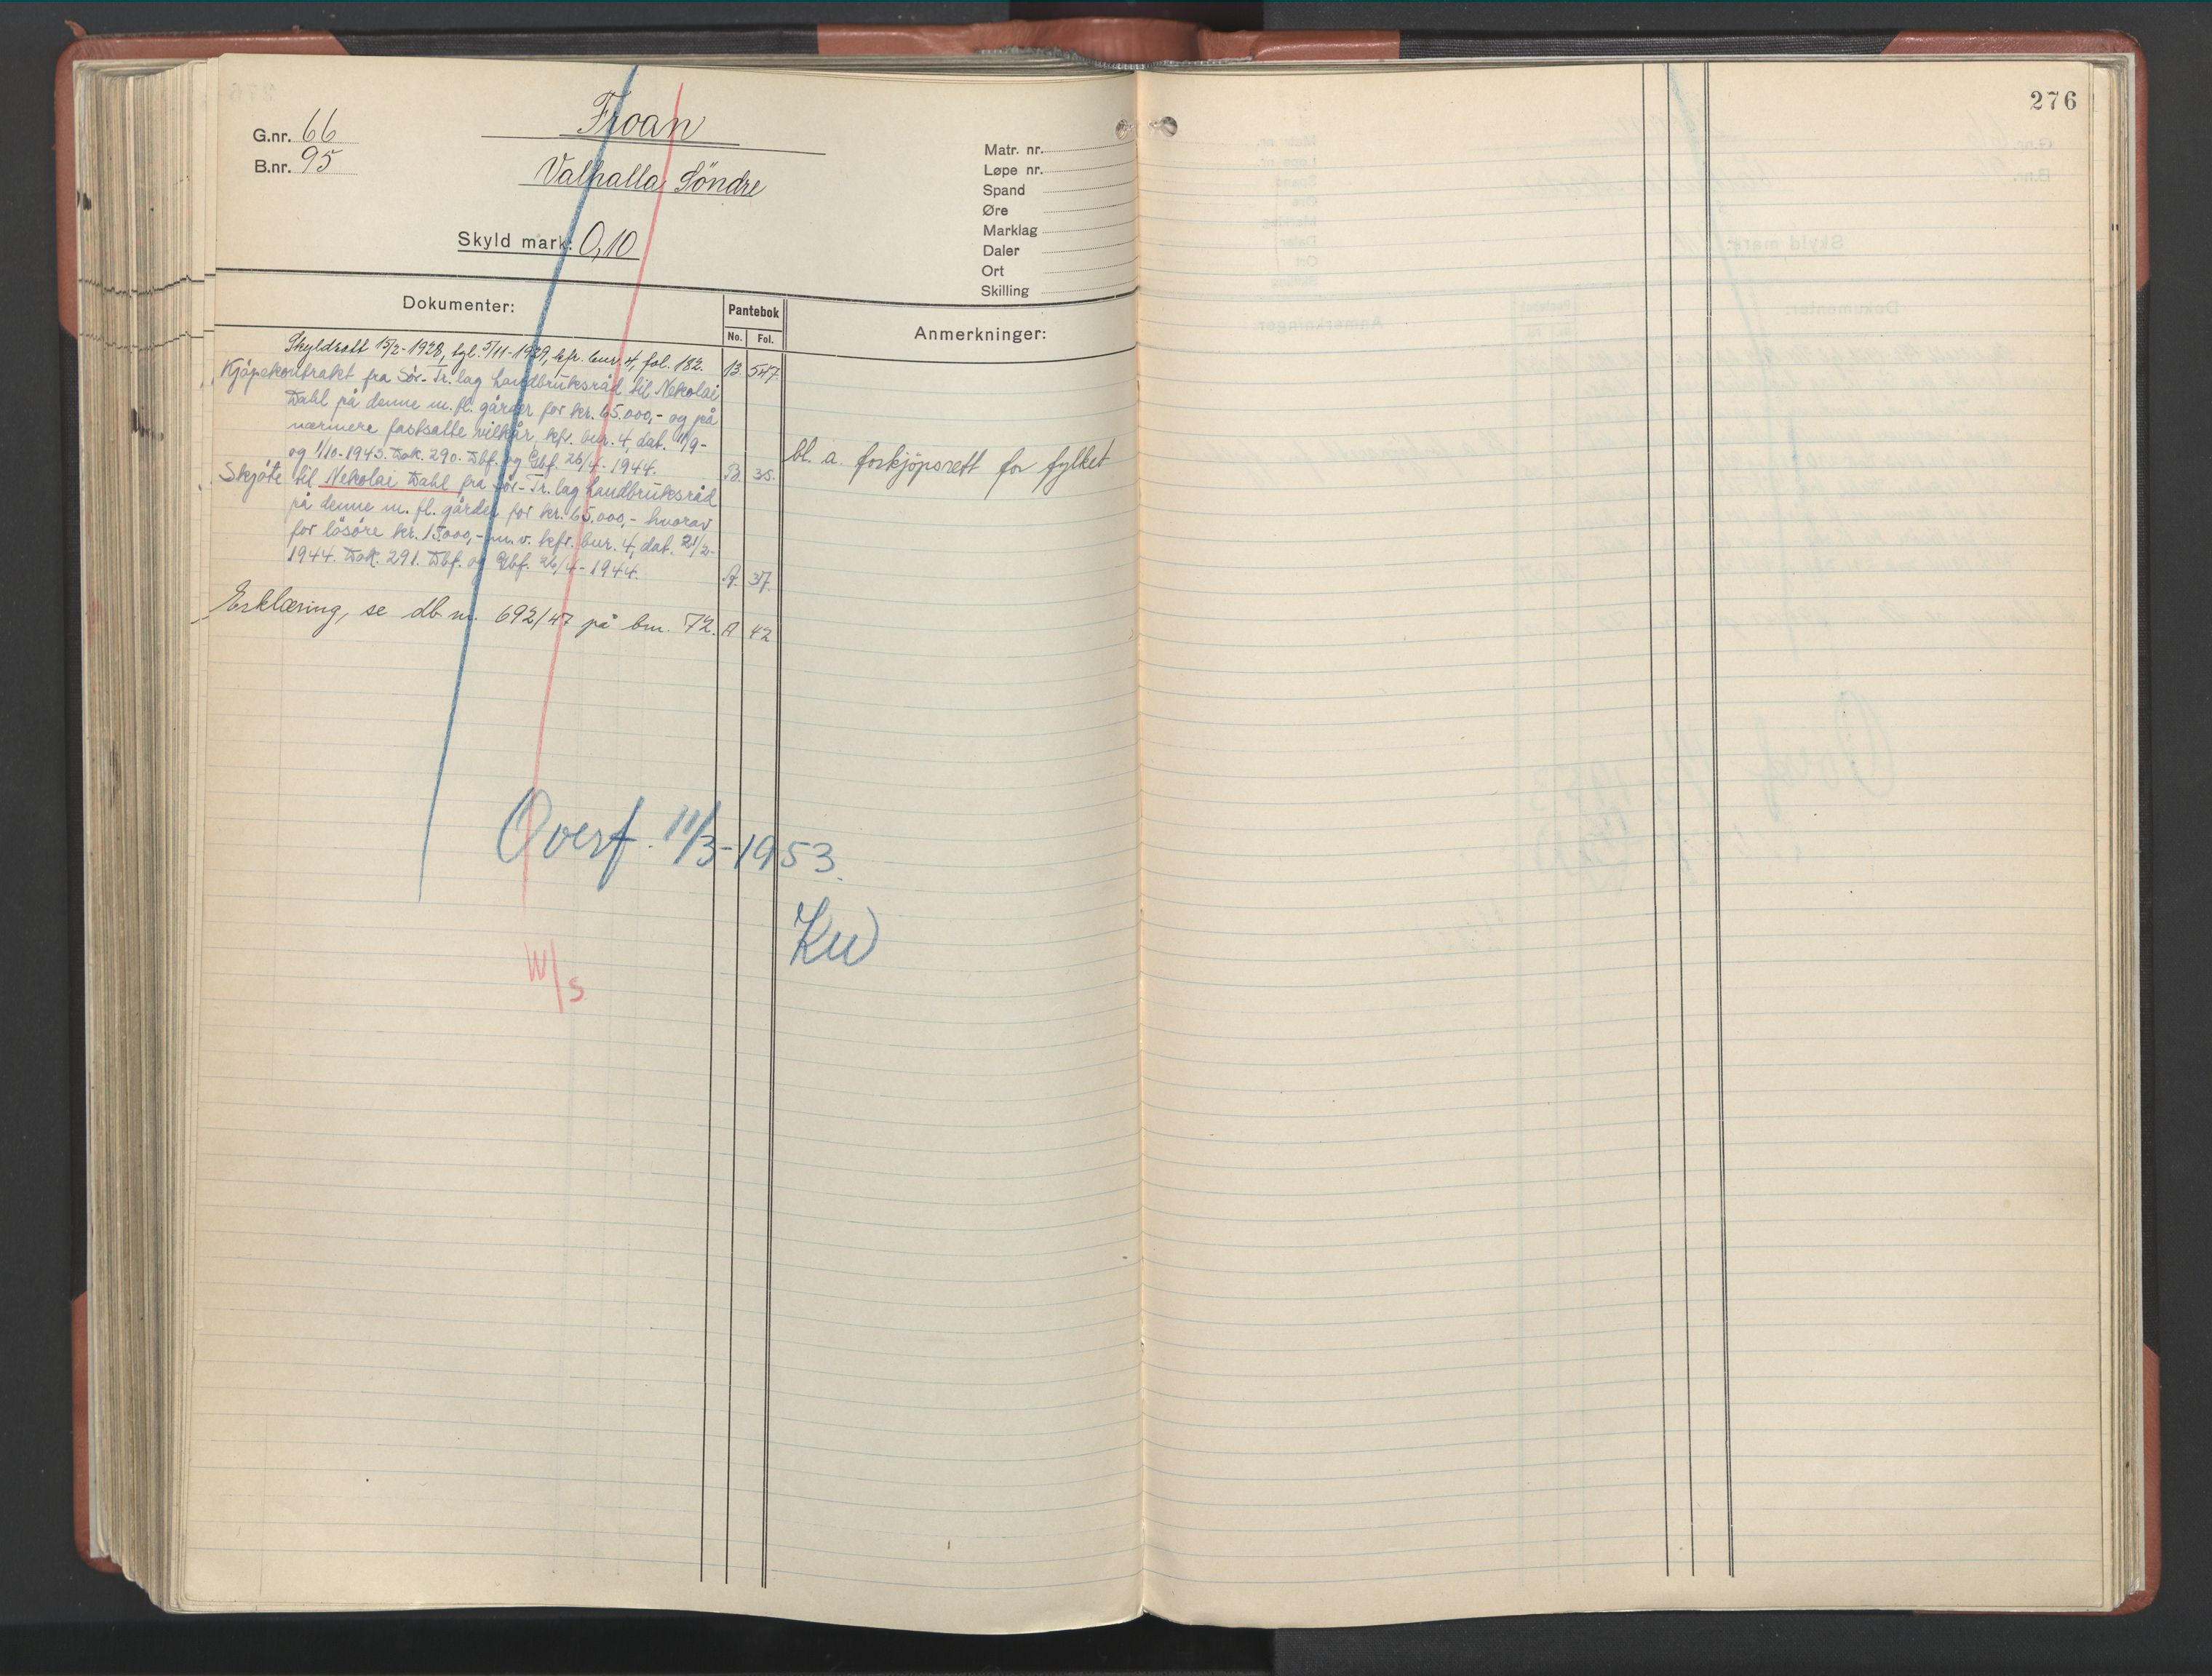 276
G.nr. 66
B.nr. 95
Froan
Valhalla Söndre
Skyld mark: 0,10
Matr. nr.
Løpe nr.
Spand
Øre
Marklag
Daler
Ort
Skilling
Dokumenter:
Pantebok
No. Fol.
Anmerkninger:
Skyldsatt 15/2-1928, tgl. 5/11-1929, kfr. bnr. 4, fol. 182. 13. 547.
Kjöpekontrakt fra Sör-Tr.lag Landbruksråd til Nekolai
Dahl på denne m.fl. gårder for kr. 65.000,- og på
nærmere fastsatte vilkår, kfr. bnr. 4, dat. 11/9-
og 1/10-1943. Dok. 290. Dbf. og Gbf. 26/4-1944. B. 35.
bl. a. forkjöpsrett for fylket
Skjöte til Nekolai Dahl fra Sör-Tr.lag Landbruksråd
på denne m. fl. gårder for kr. 65.000,- hvorav
for lösöre kr. 15000,- m.v. kfr. bnr. 4, dat. 21/2-
1944. Dok. 291. Dbf. og Gbf. 26/4-1944. A. 37.
Erklæring, se db nr. 692/47 på bnr. 72. A 42
Overf. 11/3-1953.